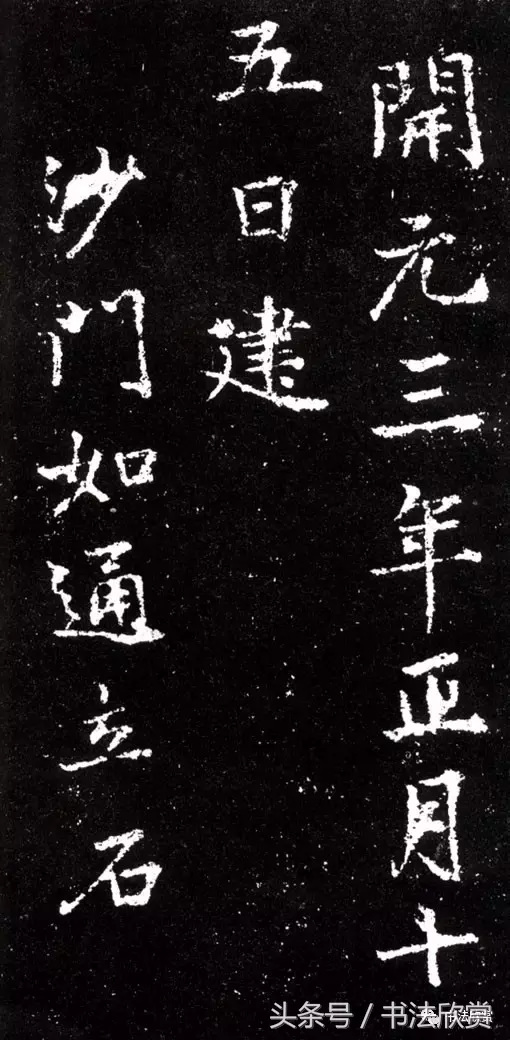 開元三年正月十
五日建
沙門如通立石
头条号 / 书法欣赏